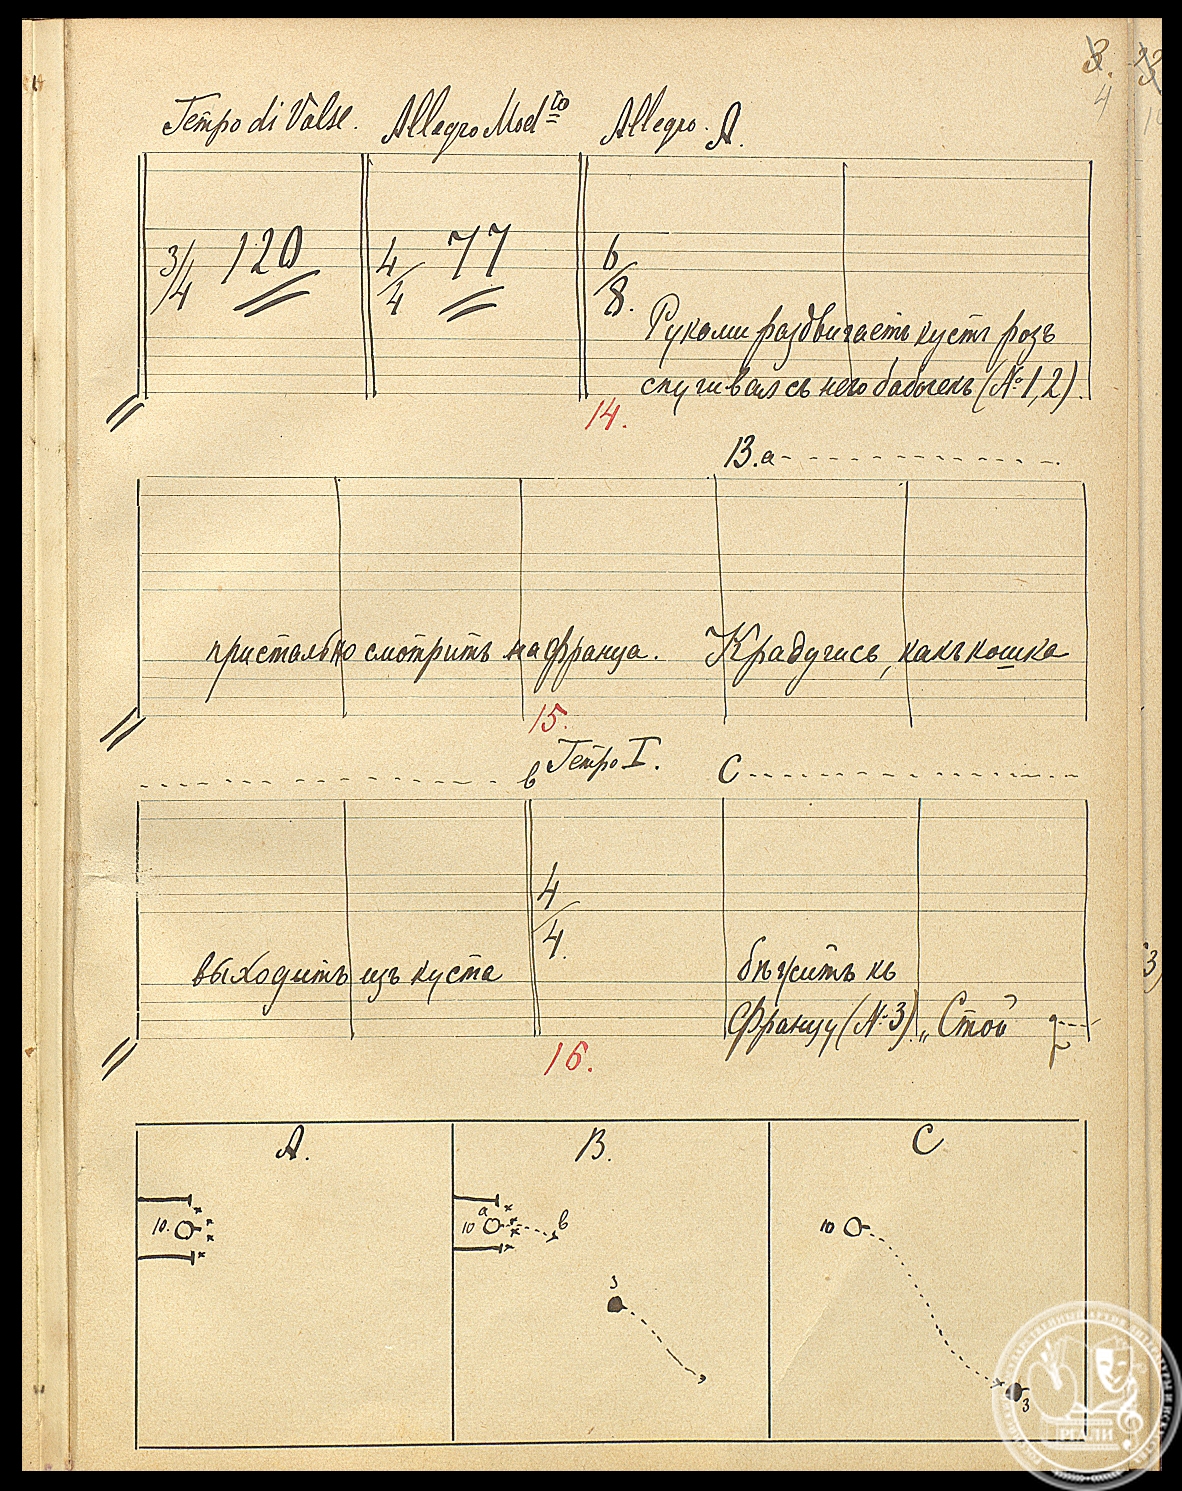 3.
4
Tempo di Valse. Allegro Mod<u>to</u> Allegro. A.
3/4 120 4/4 77 6/8.
Руками раздвигаетъ кустъ розъ
спугивая съ него бабочекъ (№ 1, 2).
14.
B. a
пристально смотритъ на Франца. Крадучись, какъ кошка
15.
в Tempo I. C
4/4.
выходитъ изъ куста бѣжитъ къ
Францу (№ 3). „Стой
16.
A. B. C
10. 10 a в 10
3
3
РГАЛИ